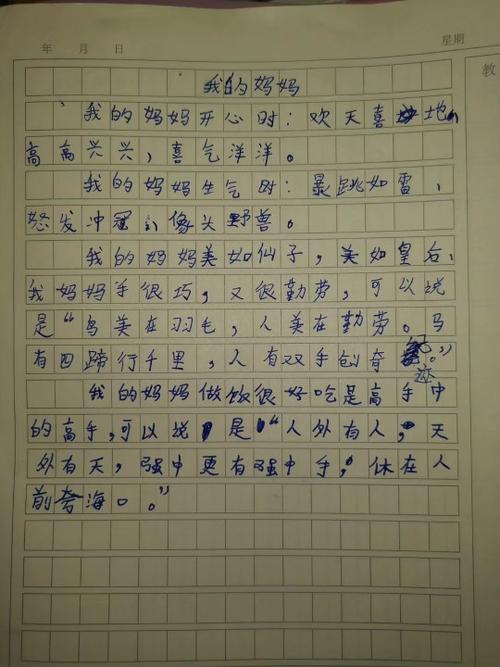 年 月 日 星期
教
我的妈妈
我的妈妈开心时：欢天喜地，
高高兴兴，喜气洋洋。
我的妈妈生气时：暴跳如雷，
怒发冲冠，像头野兽。
我的妈妈美如仙子，美如皇后，
我妈妈手很巧，又很勤劳，可以说
是“鸟美在羽毛，人美在勤劳。马
有四蹄行千里，人有双手创奇迹。”
我的妈妈做饭很好吃是高手中
的高手，可以说是“人外有人，天
外有天，强中更有强中手，休在人
前夸海口。”